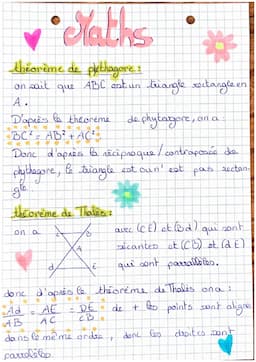 Maths
théorème de pythagore :
on sait que ABC est un triangle rectangle en
A.
D'après le théorème de phytagore, on a :
BC² = AB² + AC²
Donc d'après la réciproque / contraposée de
phytagore, le triangle est ou n' est pas rectan-
gle.
théorème de Thalès :
on a
c
b
d
E
avec (CE) et (Bd) qui sont
sécantes et (CB) et (dE)
qui sont parrallèles.
donc d'après le théorème de Thalès on a :
Ad/AB = AE/AC = DE/CB de + les points sont alignés
dans le même ordre, donc les droites sont
parallèles.